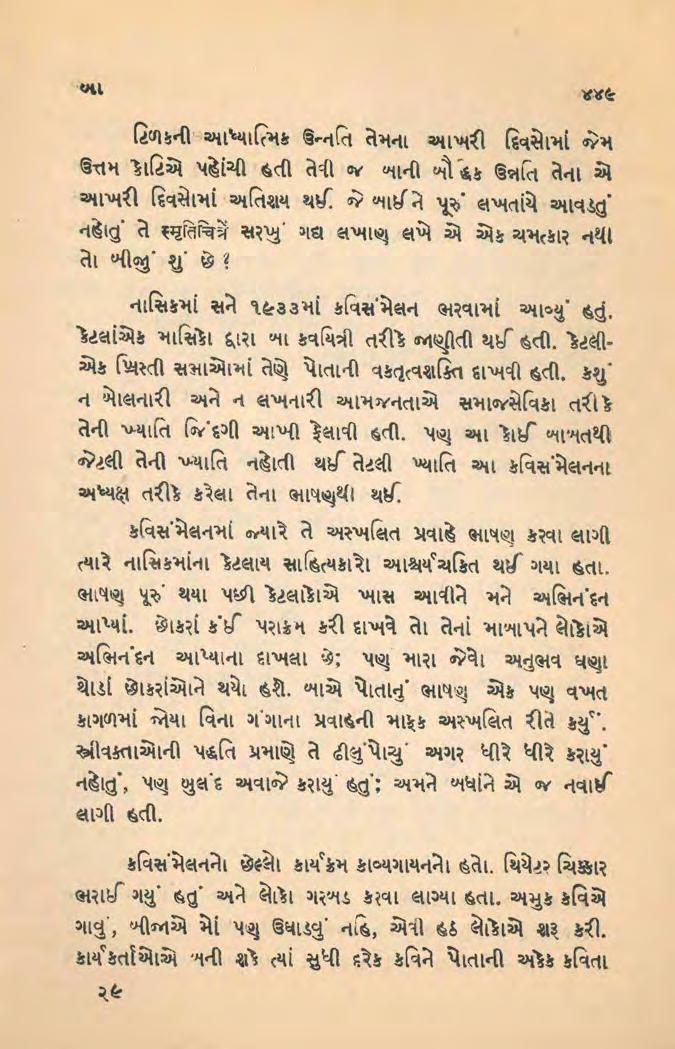 બા
૪૪૯
ટિળકની આધ્યાત્મિક ઉન્નતિ તેમના આખરી દિવસોમાં જેમ
ઉત્તમ કોટિએ પહોંચી હતી તેવી જ બાની બૌદ્ધિક ઉન્નતિ તેના એ
આખરી દિવસોમાં અતિશય થઈ. જે બાઈને પૂરું લખતાંયે આવડતું
નહોતું તે स्मृतिचित्रें સરખું ગદ્ય લખાણ લખે એ એક ચમત્કાર નથી
તો બીજું શું છે?
નાસિકમાં સને ૧૯૩૩માં કવિસંમેલન ભરવામાં આવ્યું હતું.
કેટલાંએક માસિકો દ્વારા બા કવયિત્રી તરીકે જાણીતી થઈ હતી. કેટલી-
એક ખ્રિસ્તી સભાઓમાં તેણે પોતાની વકતૃત્વશક્તિ દાખવી હતી. કશું
ન બોલનારી અને ન લખનારી આમજનતાએ સમાજસેવિકા તરીકે
તેની ખ્યાતિ જિંદગી આખી ફેલાવી હતી. પણ આ કોઈ બાબતથી
જેટલી તેની ખ્યાતિ નહોતી થઈ તેટલી ખ્યાતિ આ કવિસંમેલનના
અધ્યક્ષ તરીકે કરેલા તેના ભાષણથી થઈ.
કવિસંમેલનમાં જ્યારે તે અસ્ખલિત પ્રવાહે ભાષણ કરવા લાગી
ત્યારે નાસિકમાંના કેટલાય સાહિત્યકારો આશ્ચર્યચકિત થઈ ગયા હતા.
ભાષણ પૂરું થયા પછી કેટલાકોએ ખાસ આવીને મને અભિનંદન
આપ્યાં. છોકરાં કંઈ પરાક્રમ કરી દાખવે તો તેનાં માબાપને લોકોએ
અભિનંદન આપ્યાના દાખલા છે; પણ મારા જેવો અનુભવ ઘણા
થોડાં છોકરાંઓને થયો હશે. બાએ પોતાનું ભાષણ એક પણ વખત
કાગળમાં જોયા વિના ગંગાના પ્રવાહની માફક અસ્ખલિત રીતે કર્યું.
સ્ત્રીવક્તાઓની પદ્ધતિ પ્રમાણે તે ઢીલુંપોચું અગર ધીરે ધીરે કરાયું
નહોતું, પણ બુલંદ અવાજે કરાયું હતું; અમને બધાંને એ જ નવાઈ
લાગી હતી.
કવિસંમેલનનો છેલ્લો કાર્યક્રમ કાવ્યગાયનનો હતો. થિયેટર ચિક્કાર
ભરાઈ ગયું હતું અને લોકો ગરબડ કરવા લાગ્યા હતા. અમુક કવિએ
ગાવું, બીજાએ મોં પણ ઉઘાડવું નહિ, એવી હઠ લોકોએ શરૂ કરી.
કાર્યકર્તાઓએ બની શકે ત્યાં સુધી દરેક કવિને પોતાની અકેક કવિતા
૨૯